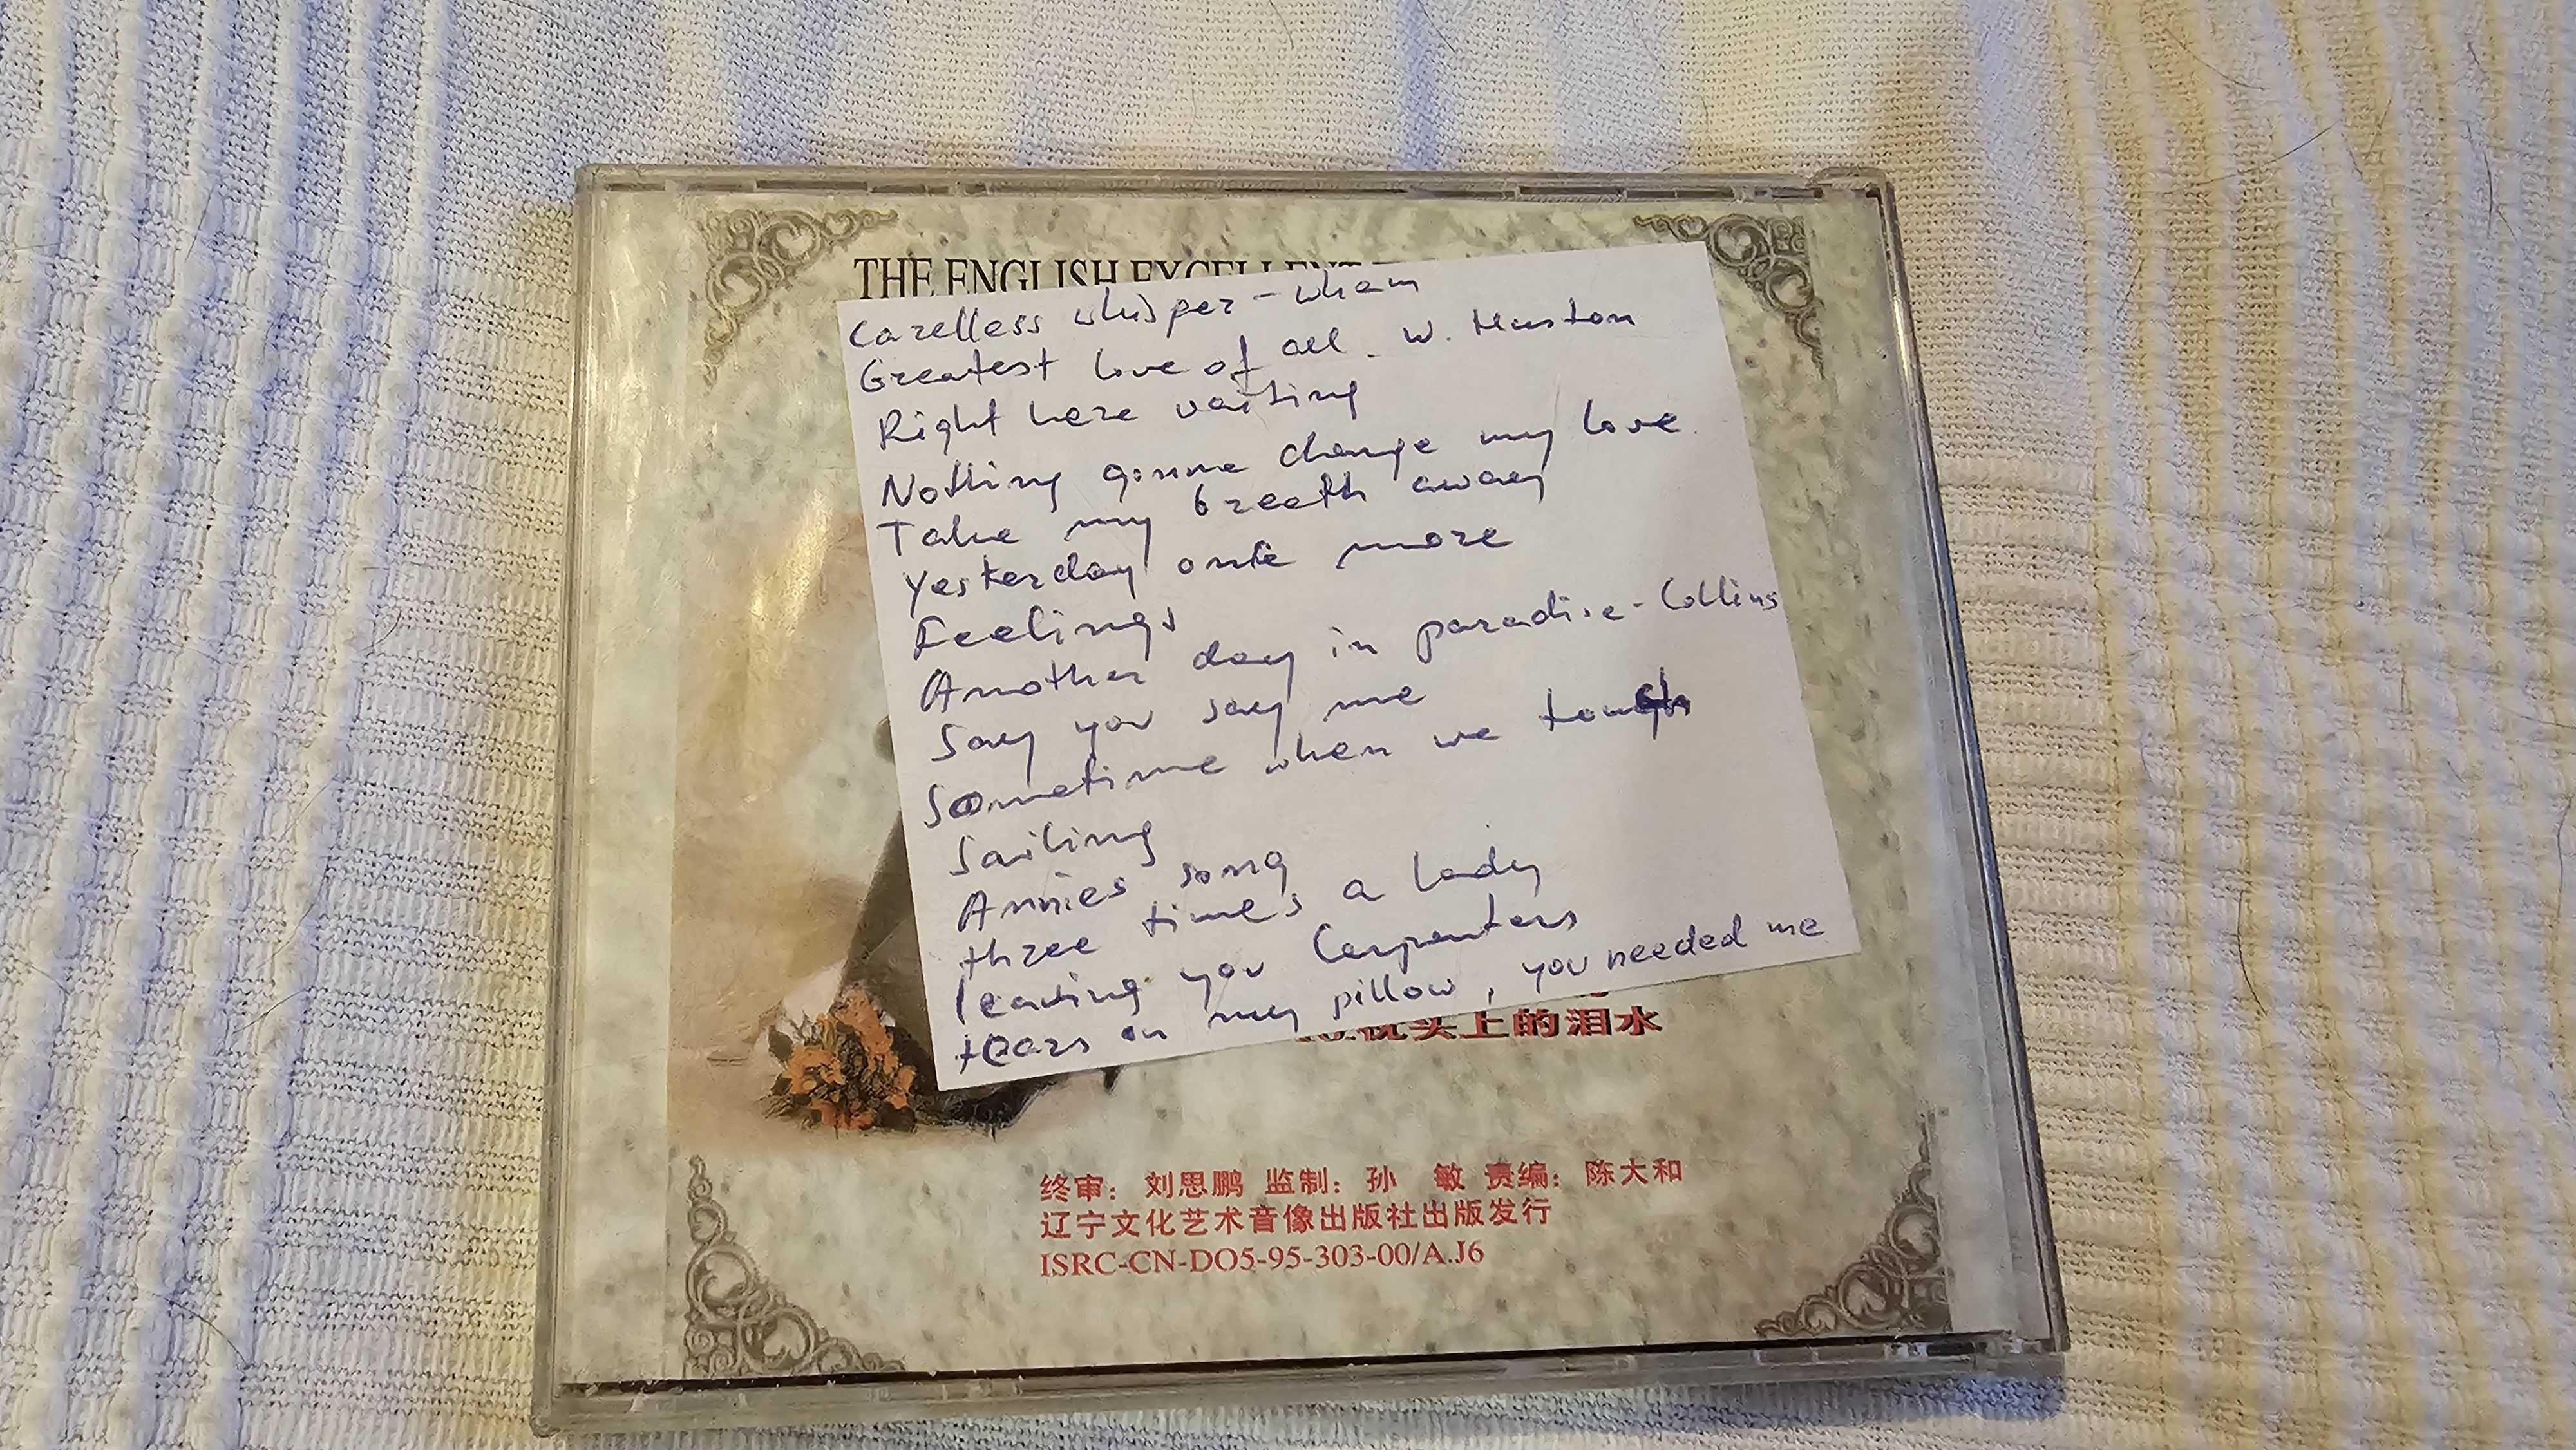 THE ENGLISH EXCELLENT
Carelless whisper - Wham
Greatest love of all. W. Huston
Right here vaiting
Nothing gonna change my love
Take my breath away
Yesterday onte more
Feelings
Another day in paradise - Collins
Say you say me
Sometime when we tough
Sailing
Annies song
three times a lady
leaving you Carpenters
tears on my pillow, you needed me
枕头上的泪水
终审： 刘思鹏 监制：孙 敏 责编：陈大和
辽宁文化艺术音像出版社出版发行
ISRC-CN-DO5-95-303-00/A.J6